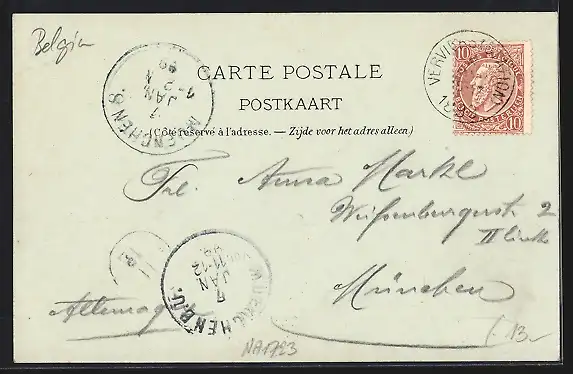 Belgien
CARTE POSTALE
POSTKAART
(Côté réservé à l'adresse. — Zijde voor het adres alleen)
10 10
VERVIERS
MUENCHEN 8.
7
JAN
1-2 N
99
Frl. Anna Markl
Weißenburgerstr 2
II links
München
Allemagne
MUENCHEN
7
JAN
11-12
£ 13.-
NA1723